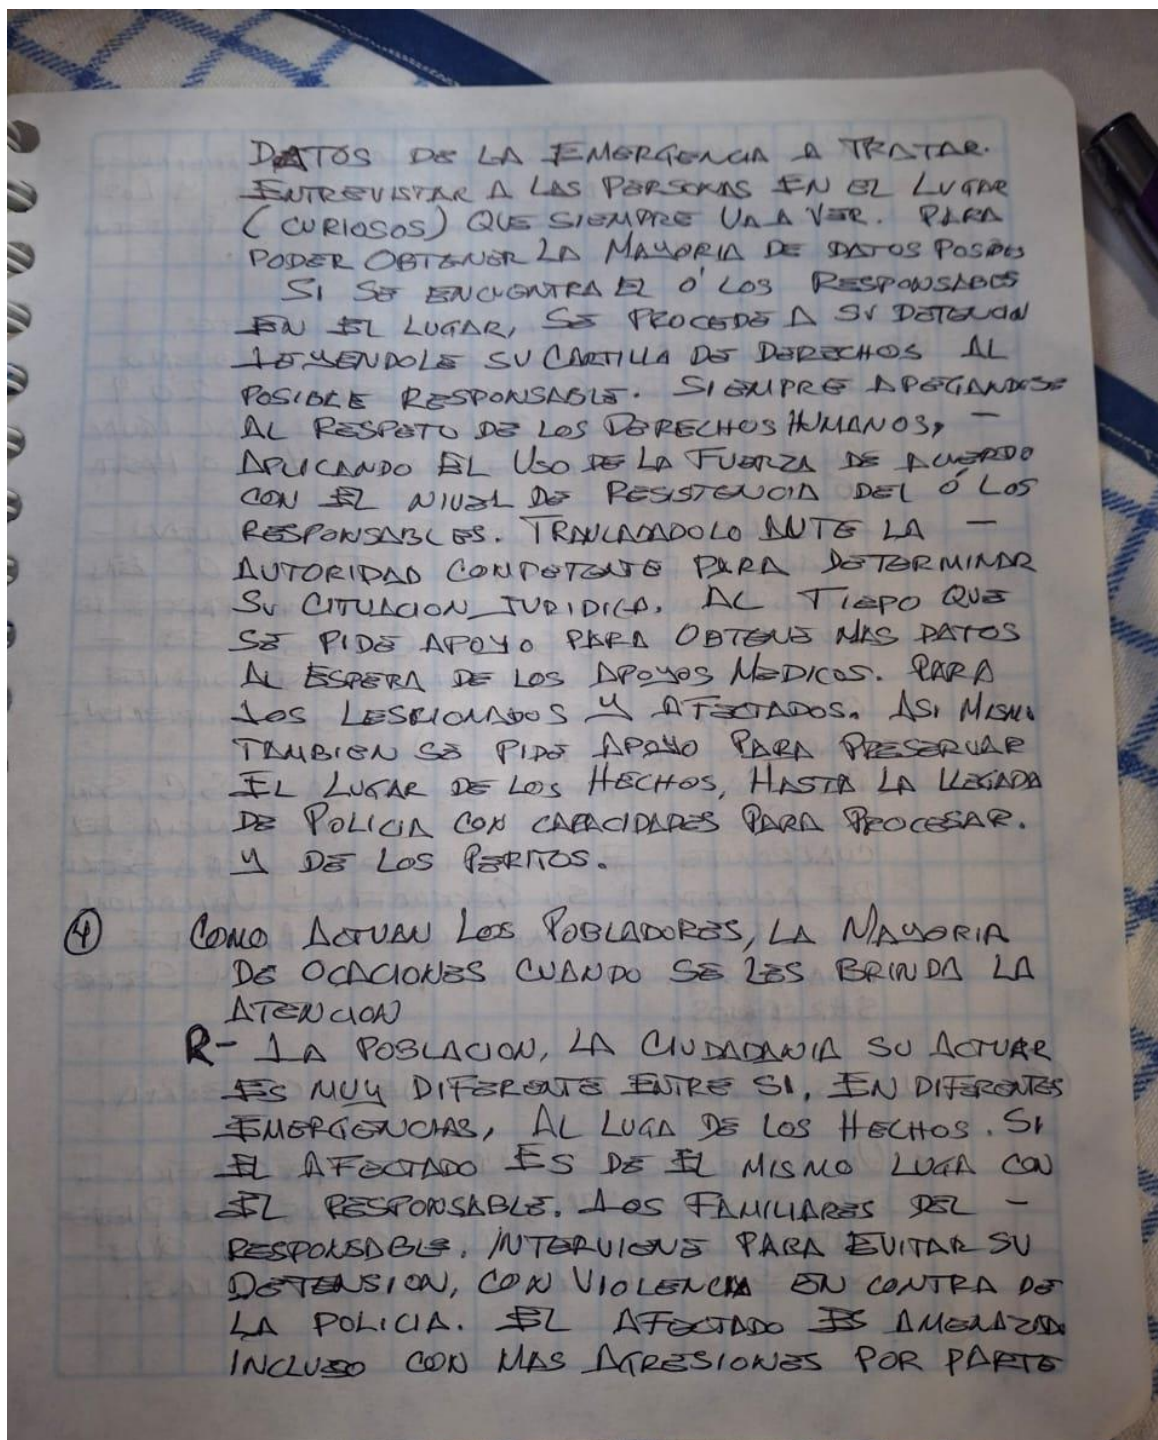 DATOS DE LA EMERGENCIA A TRATAR.
ENTREVISTAR A LAS PERSONAS EN EL LUGAR
(CURIOSOS) QUE SIEMPRE VA A VER. PARA
PODER OBTENER LA MAYORIA DE DATOS POSIBLES
SI SE ENCUENTRA EL Ó LOS RESPONSABLES
EN EL LUGAR, SE PROCEDE A SU DETENCION
LEYENDOLE SU CARTILLA DE DERECHOS AL
POSIBLE RESPONSABLE. SIEMPRE APEGANDOSE
AL RESPETO DE LOS DERECHOS HUMANOS, -
APLICANDO EL USO DE LA FUERZA DE ACUERDO
CON EL NIVEL DE RESISTENCIA DEL Ó LOS
RESPONSABLES. TRANCLADADOLO ANTE LA -
AUTORIDAD COMPETENTE PARA DETERMINAR
SU CITUACION JURIDICA. AL TIEPO QUE
SE PIDE APOYO PARA OBTENE MAS DATOS
AL ESPERA DE LOS APOYOS MEDICOS. PARA
LOS LESCIONADOS Y AFECTADOS. ASI MISMO
TAMBIEN SE PIDE APOYO PARA PRESERVAR
EL LUGAR DE LOS HECHOS, HASTA LA LLEGADA
DE POLICIA CON CAPACIDADES PARA PROCESAR.
Y DE LOS PERITOS.
4 COMO ACTUAN LOS POBLADORES, LA MAYORIA
DE OCACIONES CUANDO SE LES BRINDA LA
ATENCION
R- LA POBLACION, LA CIUDADANIA SU ACTUAR
ES MUY DIFERENTE ENTRE SI, EN DIFERENTES
EMERGENCIAS, AL LUGA DE LOS HECHOS. SI
EL AFECTADO ES DE EL MISMO LUGA CON
EL RESPONSABLE. LOS FAMILIARES DEL -
RESPONSABLE. INTERVIENE PARA EVITAR SU
DETENSION, CON VIOLENCIA EN CONTRA DE
LA POLICIA. EL AFECTADO ES AMENAZADO
INCLUSO CON MAS AGRESIONES POR PARTE